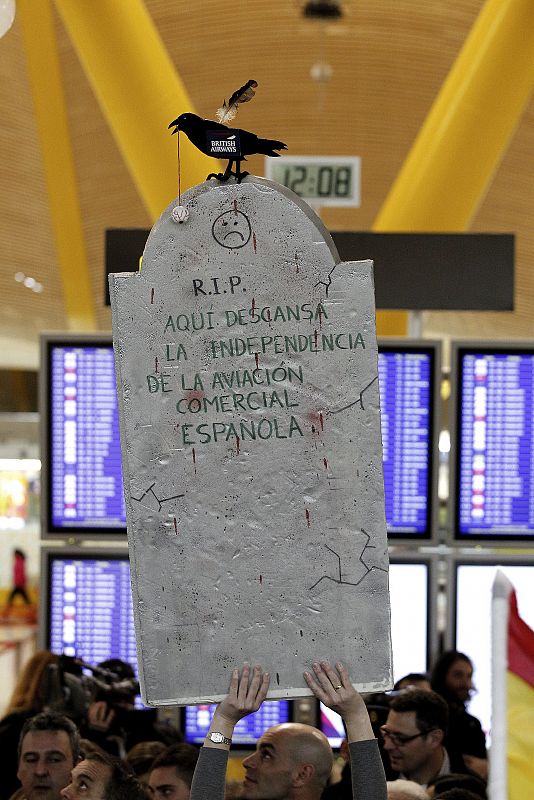 BRITISH
AIRWAYS
12:08
R.I.P.
AQUI DESCANSA
LA INDEPENDENCIA
DE LA AVIACIÓN
COMERCIAL
ESPAÑOLA